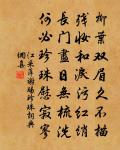 柳葉雙眉久不描
殘妝和淚污紅綃
長門盡日無梳洗
何必珍珠慰寂寥
江采萍謝賜珍珠詞典